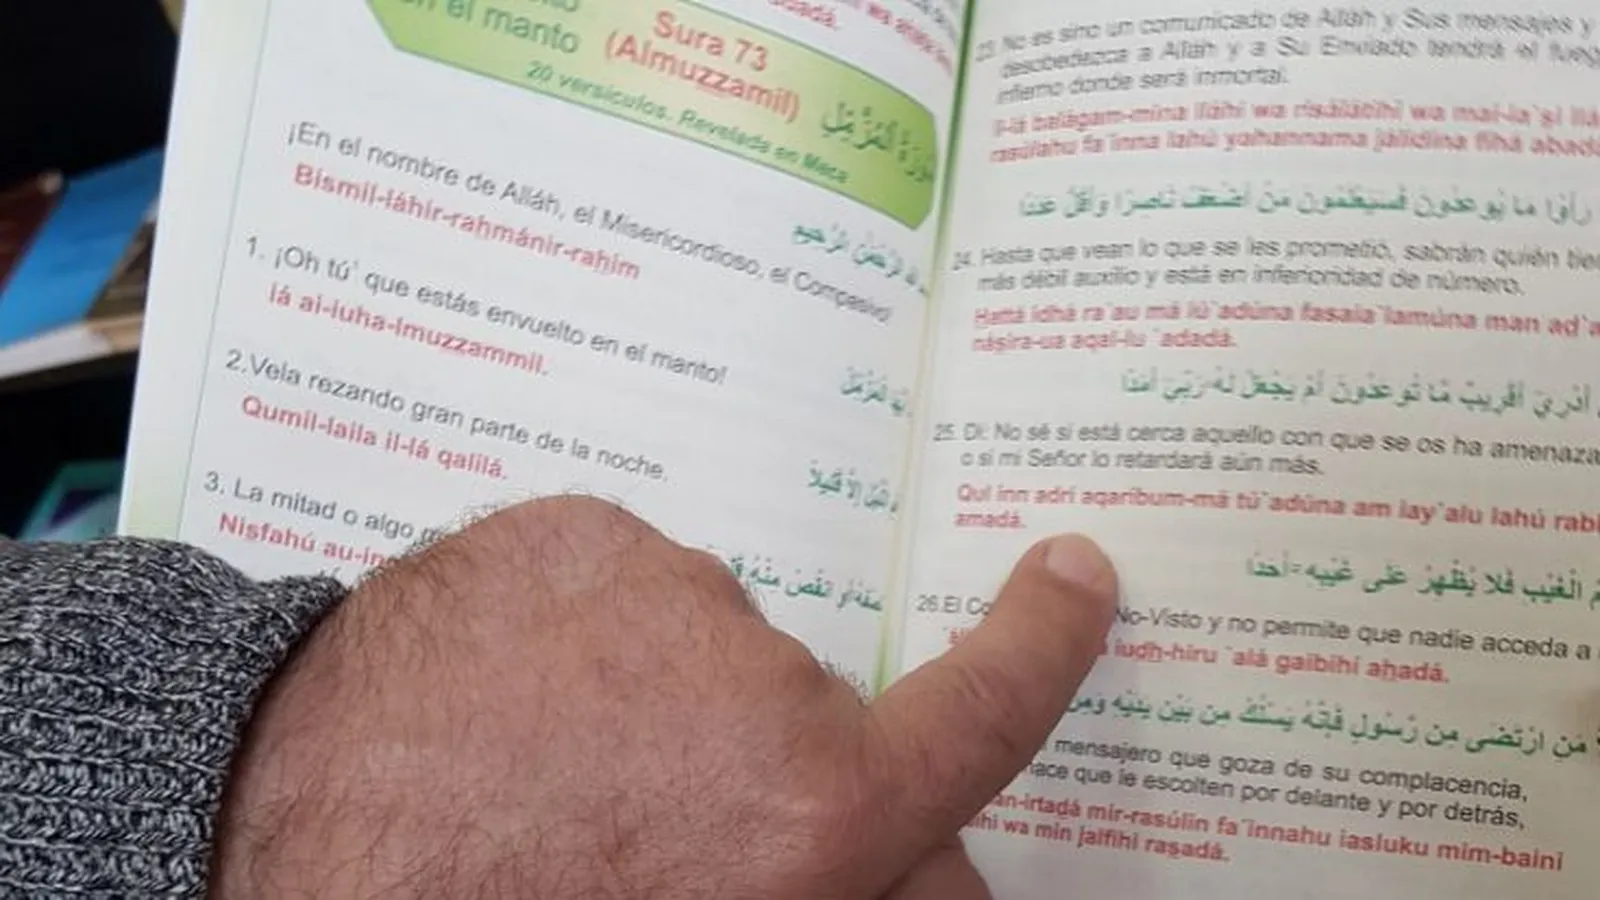 en el manto
Sura 73
(Almuzzamil)
سُورَةُ الْمُزَّمِّلِ
20 versículos. Revelada en Meca
¡En el nombre de Alláh, el Misericordioso, el Compasivo!
Bismil-láhir-rahmánir-rahim
الرَّحْمَٰنِ الرَّحِيمِ
1. ¡Oh tú` que estás envuelto en el manto!
Iá ai-iuha-lmuzzammil.
الْمُزَّمِّلُ
2.Vela rezando gran parte de la noche.
Qumil-laila il-lá qalílá.
إِلَّا قَلِيلًا
3. La mitad o algo
Nisfahú au-in
أَوِ انْقُصْ مِنْهُ
23. No es sino un comunicado de Alláh y Sus mensajes y
desobedezca a Alláh y a Su Enviado tendrá el
infierno donde será inmortal.
il-lá balágam-mina lláhi wa risálátihi wa mai-ia`si
rasúlahu fa`inna lahú yahannama jálidiina fihá
رَأَوْا مَا يُوعَدُونَ فَسَيَعْلَمُونَ مَنْ أَضْعَفُ نَاصِرًا وَأَقَلُّ عَدَدًا
24. Hasta que vean lo que se les prometió, sabrán quién
más débil auxilio y está en inferioridad de número.
Hattá idhá ra`au má iú`adúna fasaia`lamúna man
násira-ua aqal-lu `adadá.
أَدْرِي أَقَرِيبٌ مَّا تُوعَدُونَ أَمْ يَجْعَلُ لَهُ رَبِّي أَمَدًا
25. Di: No sé si está cerca aquello con que se os ha
o si mi Señor lo retardará aún más.
Qul inn adrí aqaribum-má tú`adúna am iay`alu lahú
amadá.
الْغَيْبِ فَلَا يُظْهِرُ عَلَى غَيْبِهِ أَحَدًا
26.El No-Visto y no permite que nadie acceda a
iudh-hiru `alá gaibihí ahadá.
مَنِ ارْتَضَى مِن رَّسُولٍ فَإِنَّهُ يَسْلُكُ مِن بَيْنِ يَدَيْهِ وَمِنْ
mensajero que goza de su complacencia,
hace que le escolten por delante y por detrás,
an-irtadá mir-rasúlin fa`innahu iasluku mim-baini
wa min jalfihi rasadá.